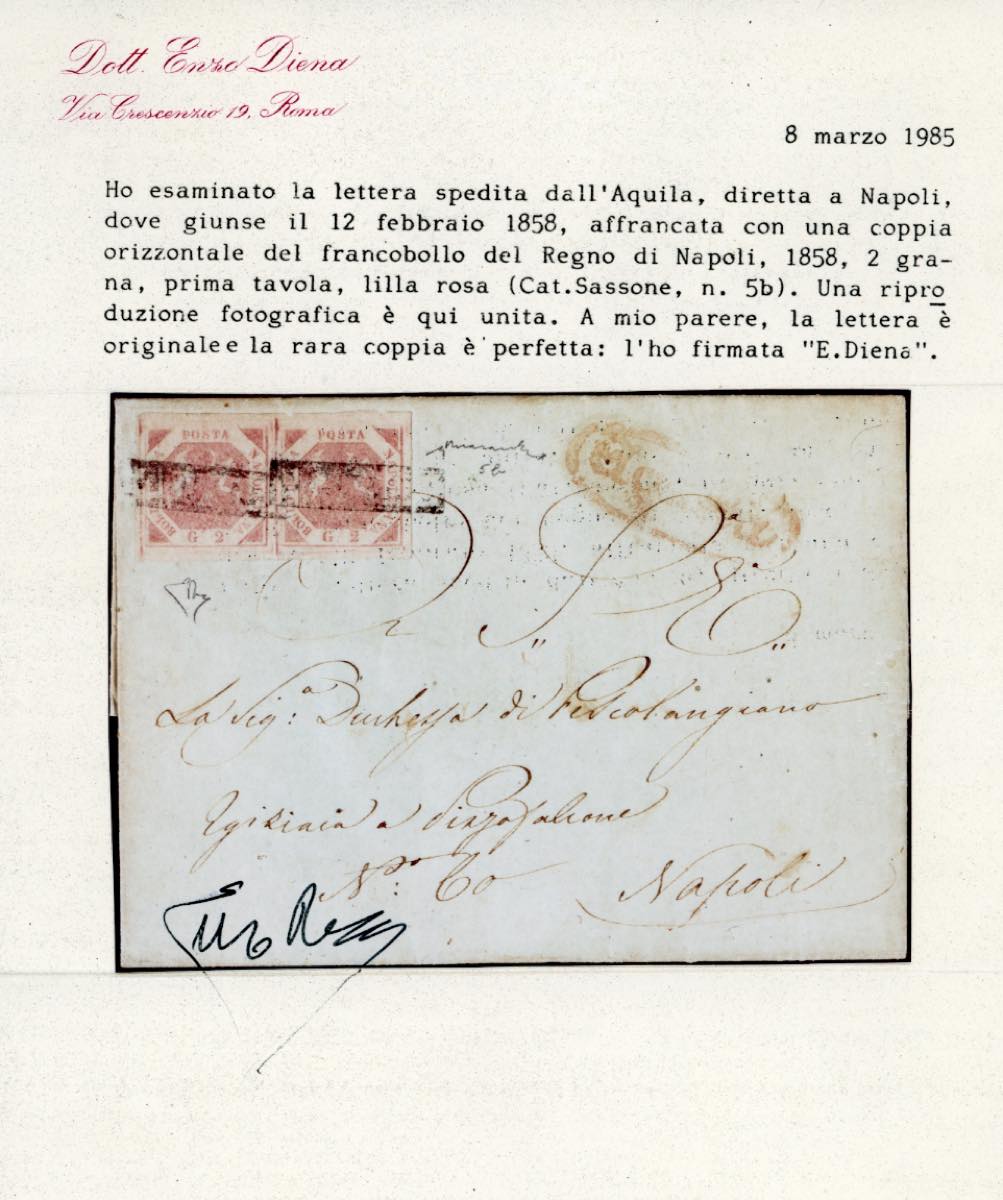 Dott. Enzo Diena
Via Crescenzio 19, Roma
8 marzo 1985
Ho esaminato la lettera spedita dall'Aquila, diretta a Napoli,
dove giunse il 12 febbraio 1858, affrancata con una coppia
orizzontale del francobollo del Regno di Napoli, 1858, 2 gra-
na, prima tavola, lilla rosa (Cat.Sassone, n. 5b). Una ripro
duzione fotografica è qui unita. A mio parere, la lettera è
originale e la rara coppia è perfetta: l'ho firmata "E.Diena".
POSTA POSTA
BOL G. 2 BOL G. 2
5b
A S. E.
La Sig.a Duchessa di Pescolangiano
a Pizzofalcone
N.ro 60 Napoli